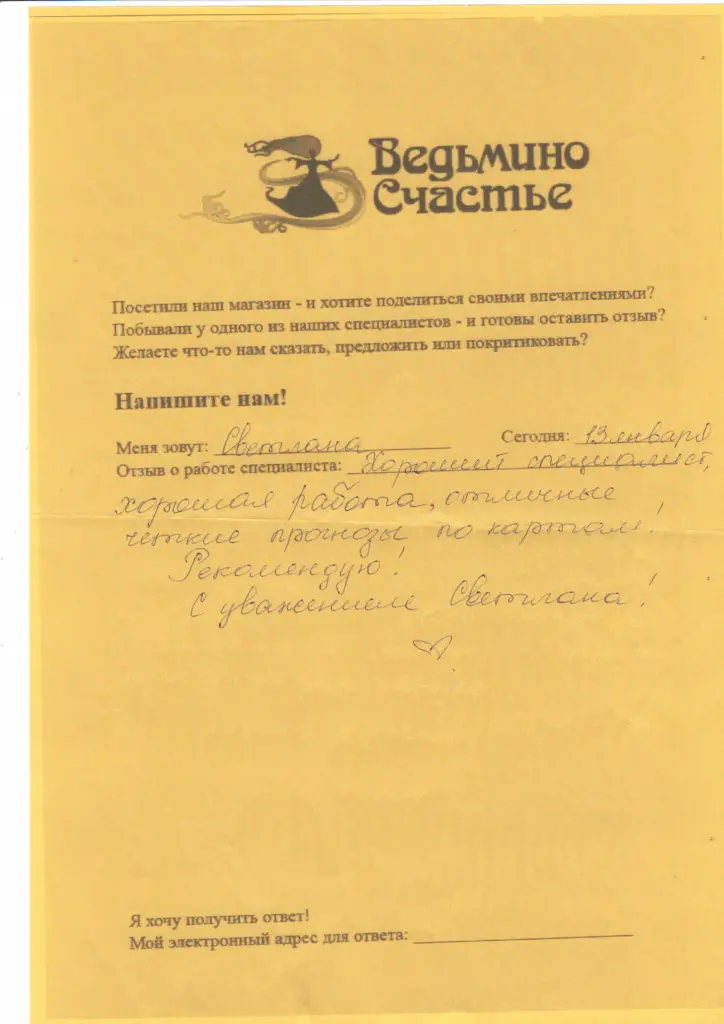 Ведьмино
Счастье
Посетили наш магазин - и хотите поделиться своими впечатлениями?
Побывали у одного из наших специалистов - и готовы оставить отзыв?
Желаете что-то нам сказать, предложить или покритиковать?
Напишите нам!
Меня зовут: Светлана Сегодня: 13 января
Отзыв о работе специалиста: Хороший специалист,
хорошая работа, отличные
четкие прогнозы по картам!
Рекомендую!
С уважением Светлана!
Я хочу получить ответ!
Мой электронный адрес для ответа: